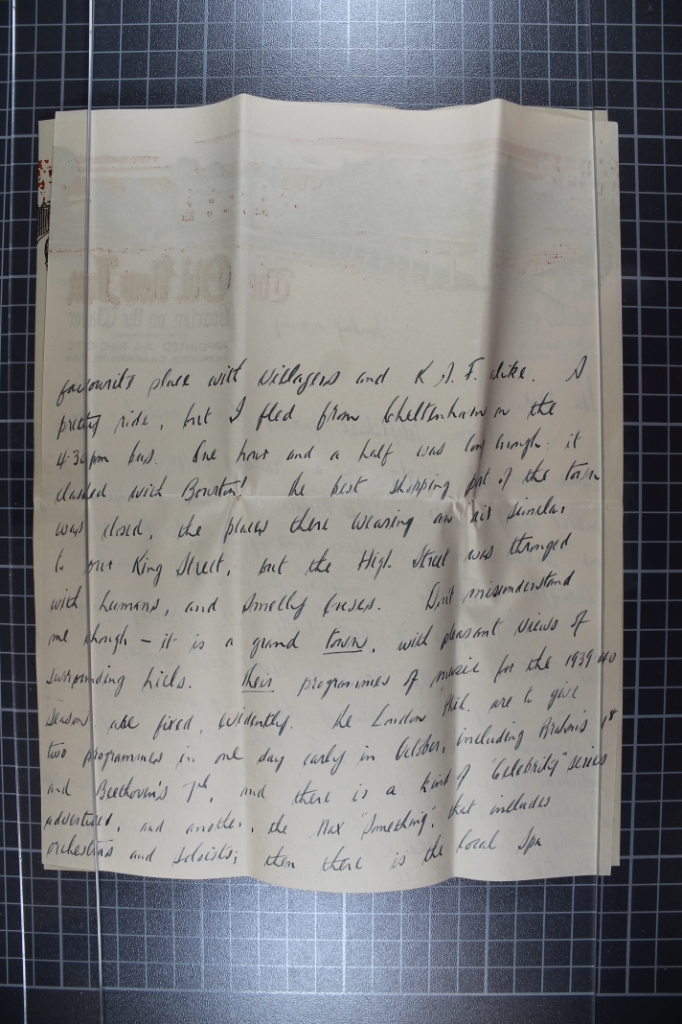 The Old New Inn
Bourton on the Water
Sunday morning
favourite place with villagers and R.A.F. alike. A
pretty ride, but I fled from Cheltenham on the
4.30 pm bus. One hour and a half was long enough: it
clashed with Bourton! The best shopping part of the town
was closed, the places there wearing an air similar
to our King Street, but the High Street was thronged
with humans, and smelly buses. Don't misunderstand
me though – it is a grand town, with pleasant views of
surrounding hills. Their programmes of music for the 1939-40
season are fixed, evidently. The London Phil. are to give
two programmes in one day early in October, including Brahms 1st
and Beethoven's 7th, and there is a kind of "Celebrity" series
advertised, and another, the Max "Something", that includes
orchestras and soloists; then there is the local Spa